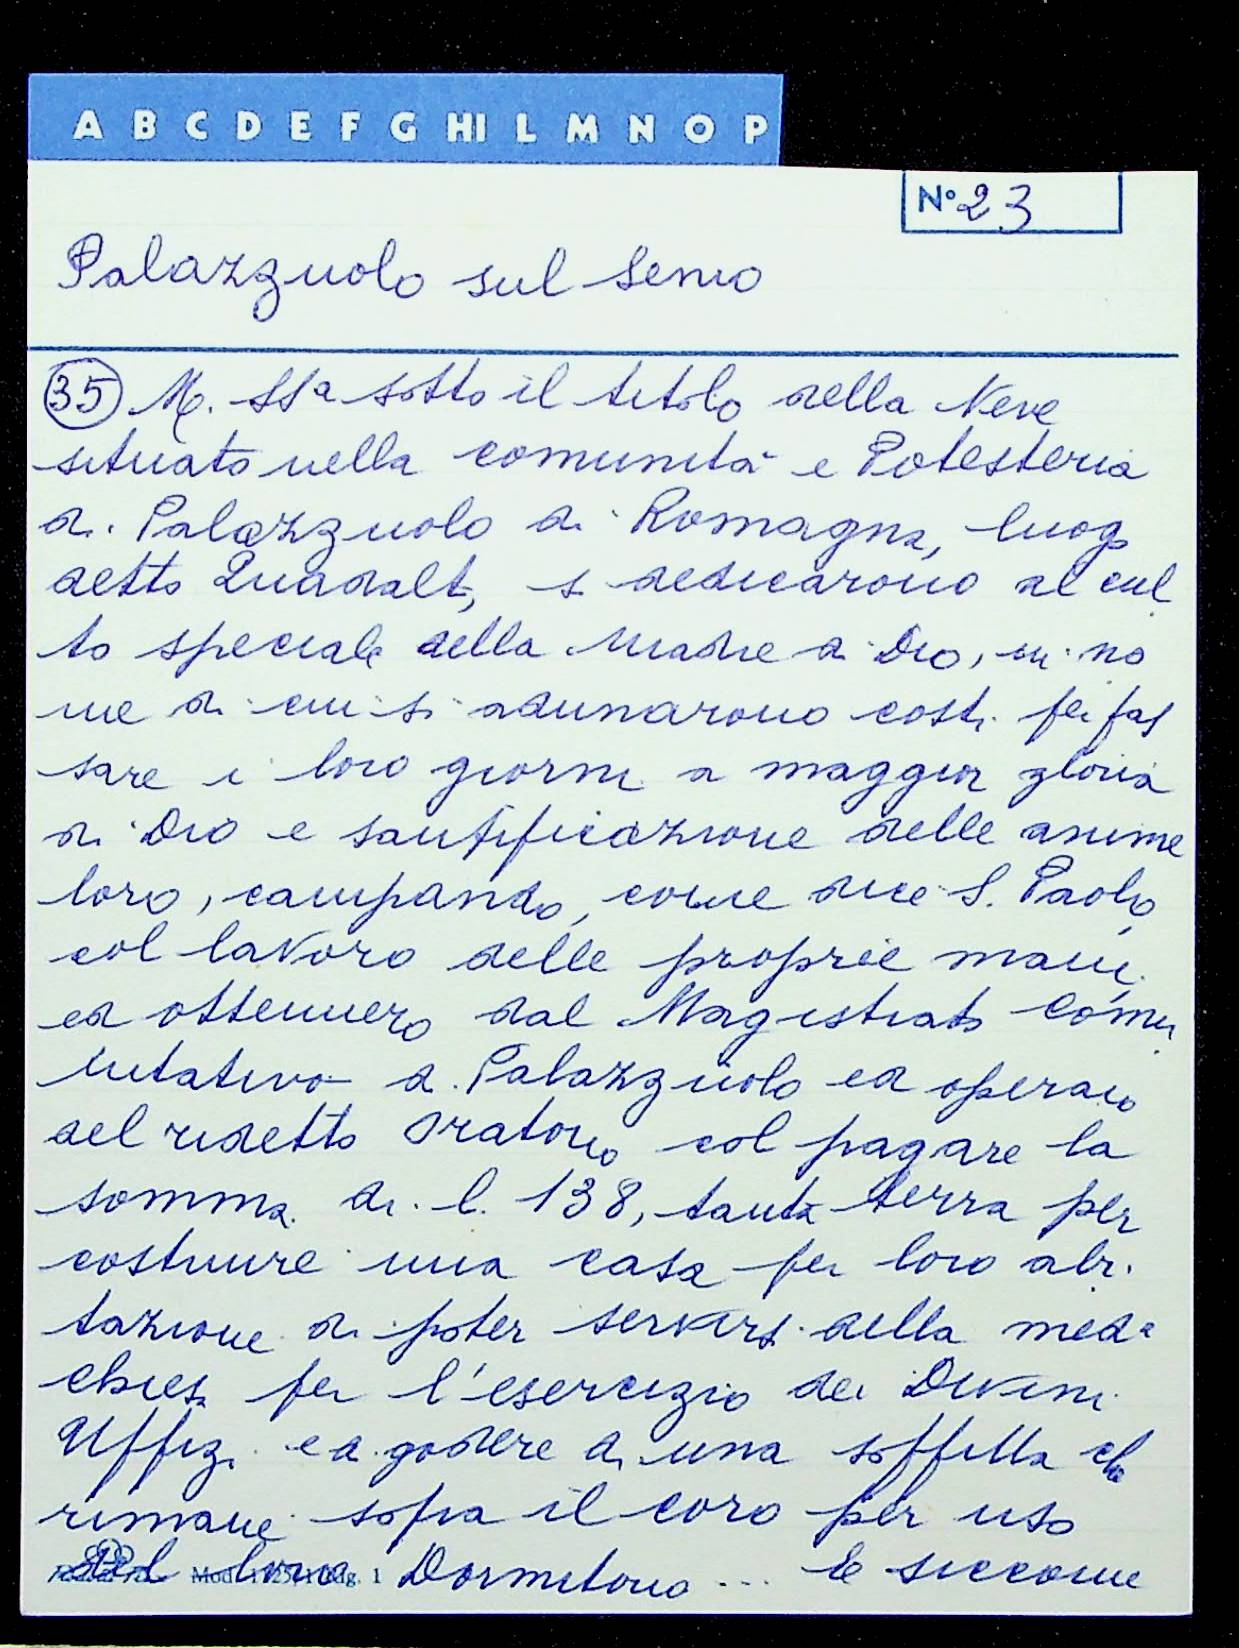 A B C D E F G HI L M N O P
N° 23
Palazzuolo sul Senio
35 M. SSa sotto il titolo della Neve
situato nella comunità e Potesteria
di Palazzuolo di Romagna, luogo
detto Quadalt, si dedicarono al cul
to speciale della Madre di Dio, in no
me di cui si adunarono costì per pas
sare i loro giorni a maggior gloria
di Dio e santificazione delle anime
loro, campando, come dice S. Paolo,
col lavoro delle proprie mani
ed ottennero dal Magistrato Comu
nitativo di Palazzuolo ed operaio
del ridetto Oratorio col pagare la
somma di l. 138, tanta terra per
costruire una casa per loro abi
tazione di poter servirsi della meda
chiesa per l'esercizio dei Divini
Uffizi ed godere di una soffitta che
rimane sopra il coro per uso
del loro Dormitorio ... E siccome
Mod. pag. 1